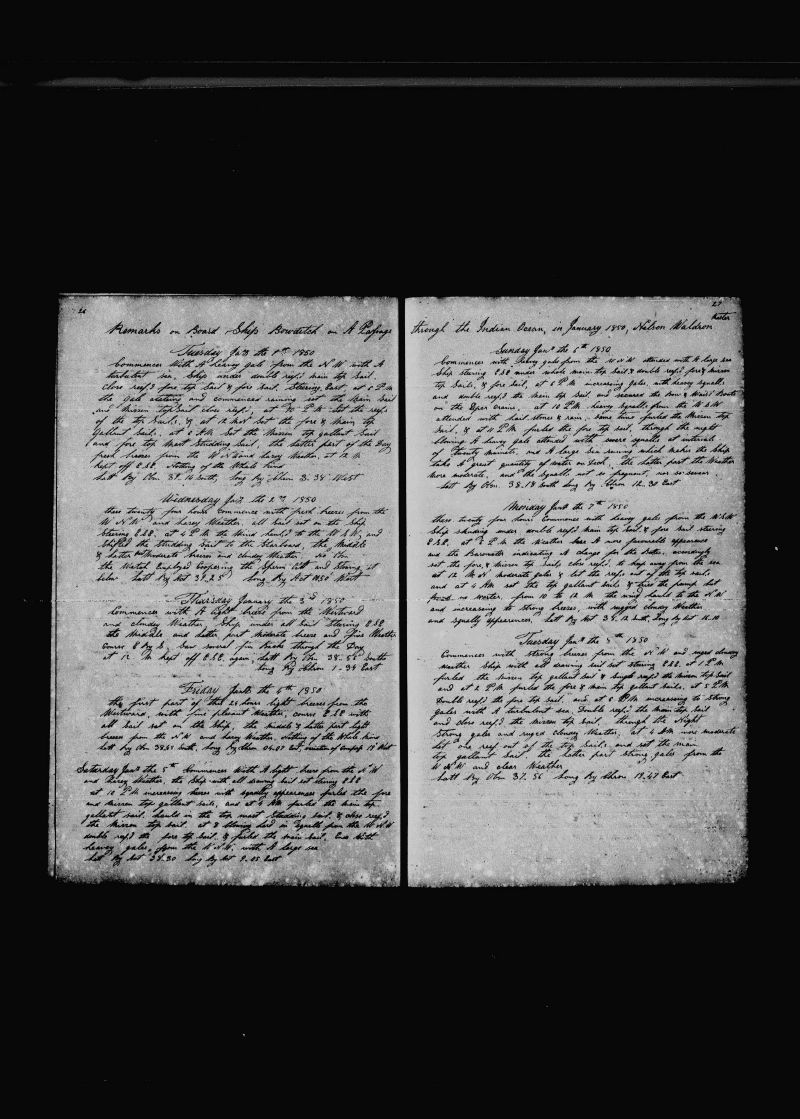 26
Remarks on Board Ship Bowditch on A Passage
Tuesday Jany the 1st 1850
Commences With A heavy gale from the N.W with A
turbulent sea, Ship under double reef'd main top sail,
close reef'd fore top sail & fore sail. Steering East, at 5 P.M
the Gale abating and commenced raining set the Main Sail
and Mizzen topsail close reef'd, at 10 P.M let the reefs
of the top Sails, & at 12 MN Set the fore & Main top
Gallant Sails, at 8 AM Set the Mizzen top gallant Sail
and fore top Mast Studding Sail, the latter part of the Day
fresh breezes from the W N W and hazey Weather at 12 M
kept off E.S.E. Nothing of the Whale kind
Latt By Obn 39.16 South, Long By Chron 3.38 West
Wednesday Jany the 2nd 1850
these twenty four hours commence with fresh breezes from the
W N W and hazey Weather. all Sail set on the Ship
Steering E.S.E. at 4 P.M the Wind hauld to the W.S.W, and
Shifted the Studding Sail to the Starboard, the Middle
& latter Moderate breeze and cloudey Weather. no Obn
the Watch Employed Coopering the Sperm Oil and Stowing it
below Latt By Act 39.25 Long By Act West
Thursday January the 3d 1850
Commences with A light breeze from the Westward
and cloudey Weather, Ship under all Sail Steering E.S.E
the Middle and latter part Moderate breeze and fine Weather
course E by S, Saw several fin Backs though the Day
at 12 M kept off E.S.E. again, Latt By Obn 38.55 South
Long By Chron 1.34 East
Friday Jany the 4th 1850
the first part of these 24 hours light breezes from the
Westward, with fine pleasant Weather, course E.S.E with
all Sail set on the Ship, the middle & latter part light
breezes from the N.W and hazey Weather, Nothing of the Whale kind
Latt by Obn South, Long By Chron East, variation of Compass 19 West
Saturday Jany the 5th Commences With A light breeze from the N.W
and Hazey Weather, the Ship with all drawing sail set steering E.S.E
at 10 P.M increasing breezes with squally appearances furled the fore
and Mizzen top gallant sails, and at 4 AM furled the main top
gallant sail, hauld in the top mast Studding Sail & close reef'd
the Mizzen top Sail. at 8 blowing hard in Squalls from the W.N.W
double reef'd the fore top Sail, & furled the main Sail, Ends With
heavey gales from the W.N.W. with A large sea
Latt By Act 38.30 Long By Act East
27
through the Indian Ocean, in January 1850, Nelson Waldron Master
Sunday Jany the 6th 1850
Commences with heavy gales from the W N W attended with A large sea
Ship steering E.S.E under whole main top Sail & double reef'd fore & mizzen
top Sails, & fore sail, at 5 P.M increasing gales, with heavy squalls
and double reef'd the main top Sail and secured the Bow & Waist Boats
on the Uper cranes, at 10 P.M. heavy Squalls from the W.S.W
attended with hail stones & rain. Same time furled the Mizzen top
Sail, & at 12 P.M furled the fore top sail, through the night
blowing A heavy gale attended with severe squalls at intervals
of twenty minutes, and A large Sea running which makes the Ship
take A great quantity of water on Deck, the latter part the Weather
more moderate, and the Squalls not so frequent, nor so severe
Latt By Obn 38.19 South Long By Chron 12.30 East
Monday Jany the 7th 1850
these twenty four hours Commences with heavy gales from the W.S.W
Ship skudding under double reef'd main top Sail & fore sail steering
E.S.E. at 8 P.M the Weather has A more favorable appearance
and the Barometer indicating A change for the better, accordingly
set the fore & mizzen top sails close reef'd, to keep away from the sea
at 12 MN moderate gales & let the reefs out of the top sails
and at 4 AM set the top gallant sails & tries the pumps but
no water, from 10 to 12 M the wind hauls to the N.W
and increasing to strong breezes, with rugged cloudey Weather
and squally appearances, Latt By Act 38.12 South, Long By Act 16.10
Tuesday Jany the 8th 1850
Commences with strong breezes from the N W and ruged cloudey
Weather Ship with all drawing sail set steering E.S.E. at 1 P.M
furled the mizzen top gallant sail & single reef'd the mizzen top sail
and at 2 P.M furled the fore & main top gallant sails, at 5 P.M
double reef'd the fore top sail, and at 8 P.M increasing to strong
gales with A turbulent sea, double reef'd the main top sail
and close reef'd the mizzen top sail. though the Night
Strong gales and ruged cloudey Weather, at 4 AM more moderate
let one reef out of the top Sails, and set the main
top gallant Sail. the latter part Strong gales from the
W N W and clear Weather
Latt By Obn 37.56 Long By Chron 19.47 East